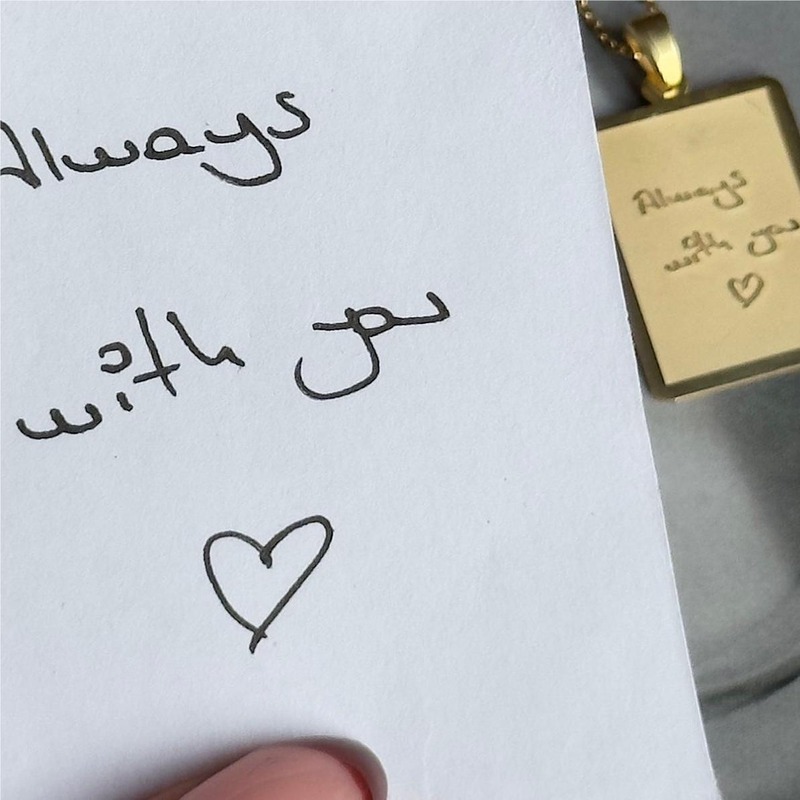 Always
with you
Always
with you